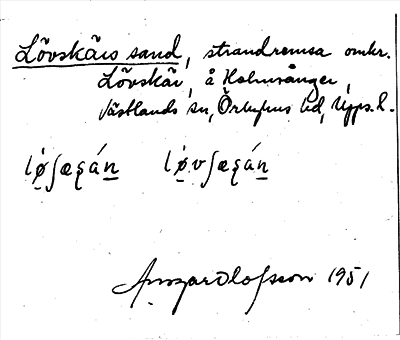 Lövskärs sand, strandremsa omkr.
Lövskär, å Holmsånger,
Västlands sn, Örbyhus hd, Upps. l.
lø̀ʃæʂán̲ lø̀vʃæʂán̲
Ansgar Olofsson 1951